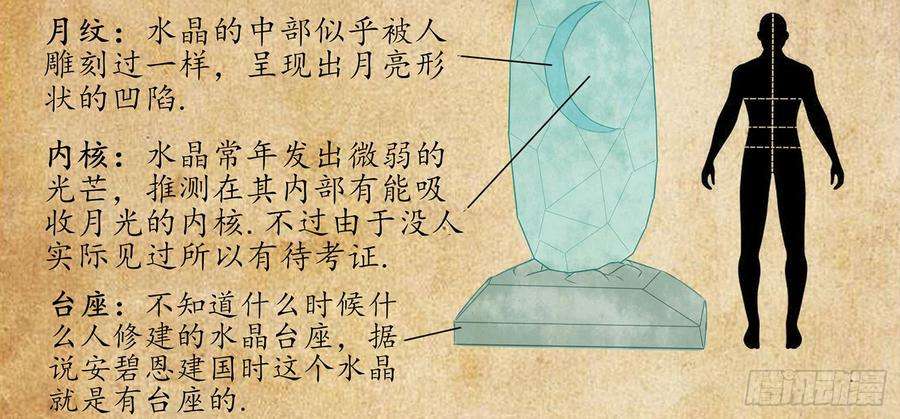 月纹：水晶的中部似乎被人
雕刻过一样，呈现出月亮形
状的凹陷.
内核：水晶常年发出微弱的
光芒，推测在其内部有能吸
收月光的内核.不过由于没人
实际见过所以有待考证.
台座：不知道什么时候什
么人修建的水晶台座，据
说安碧恩建国时这个水晶
就是有台座的.
腾讯动漫